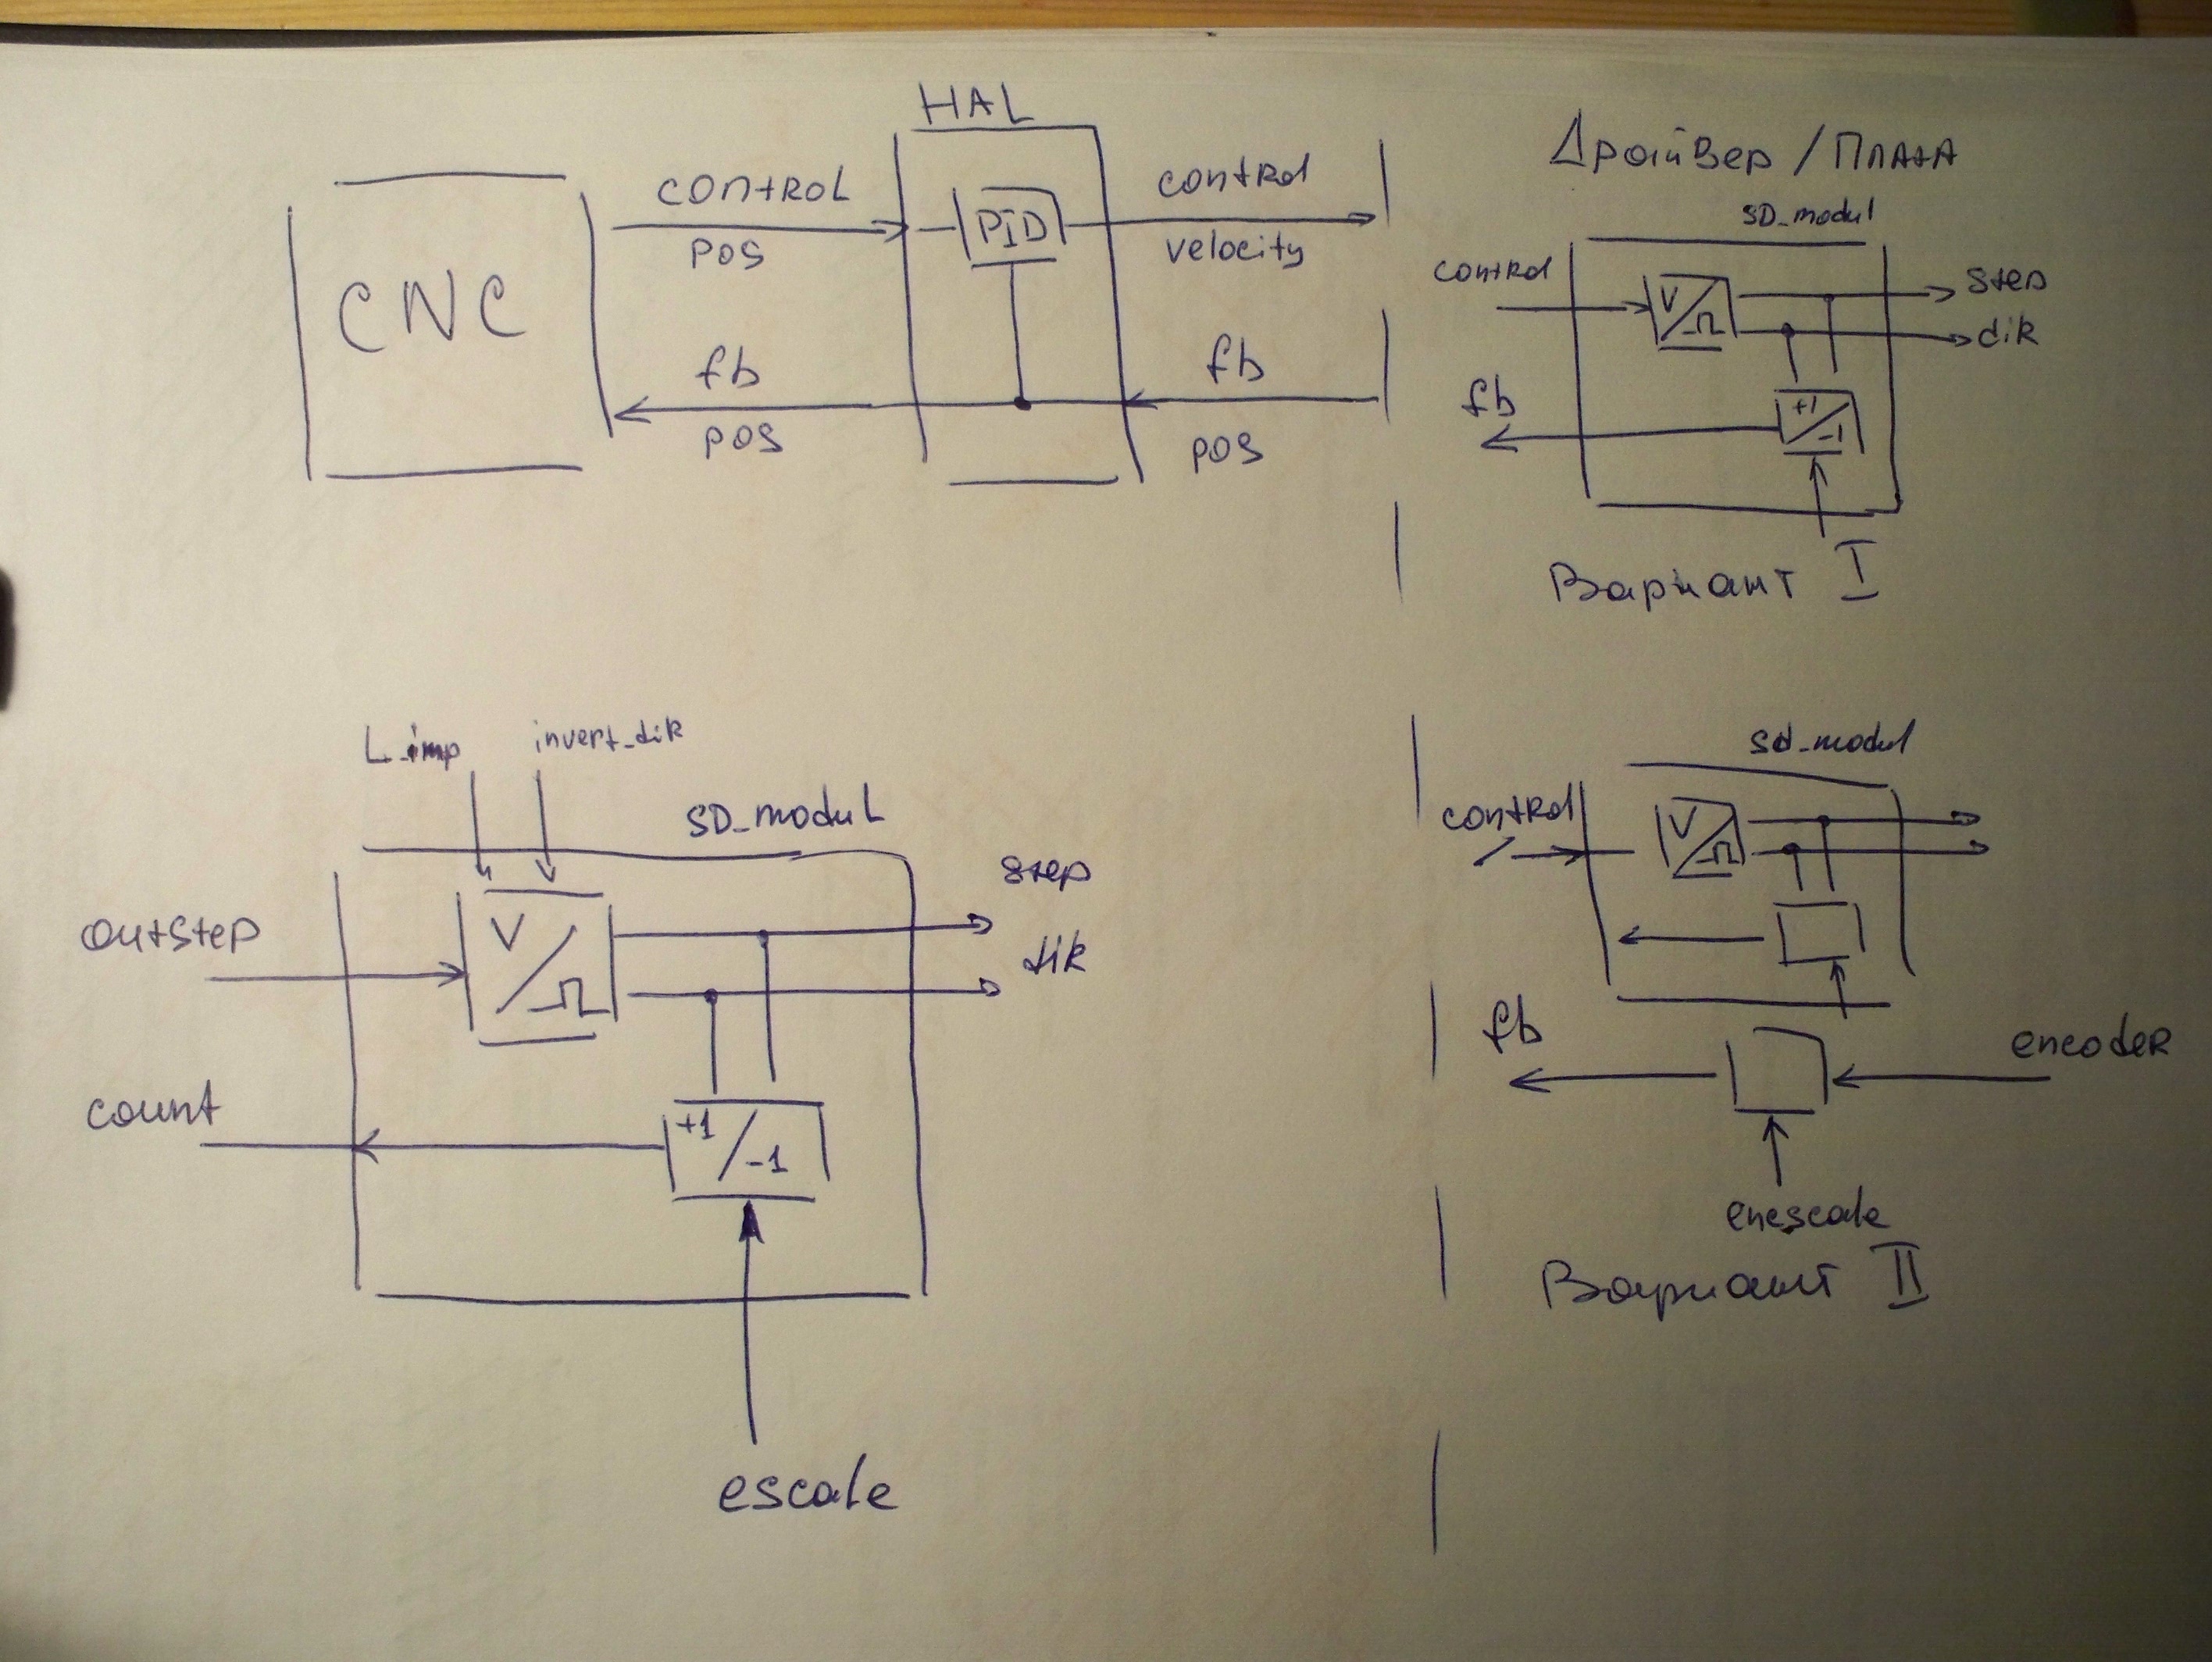 HAL
CNC
CONTROL
POS
PID
control
velocity
fb
pos
fb
pos
Драйвер / Плата
SD_modul
control
V
step
dir
fb
+1
-1
Вариант I
L_imp
invert_dir
SD_modul
outstep
V
step
dir
count
+1
-1
escale
sd_modul
control
V
fb
encoder
enescale
Вариант II